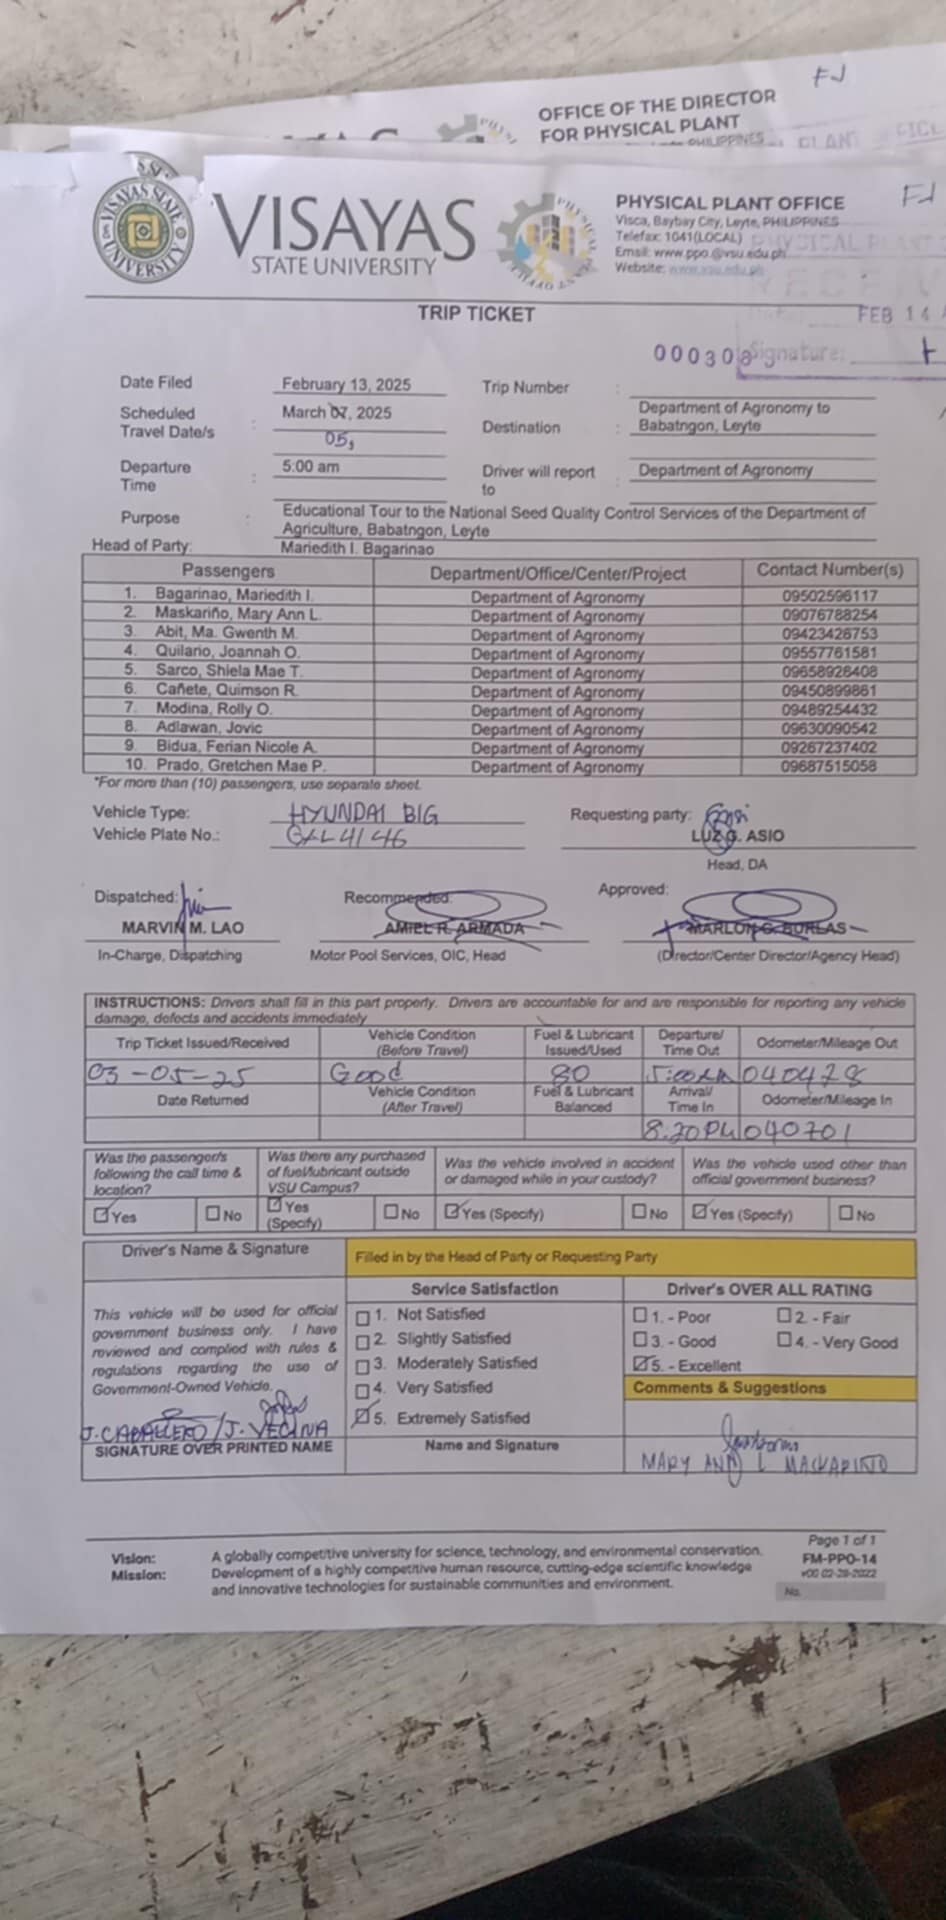 FJ
OFFICE OF THE DIRECTOR
FOR PHYSICAL PLANT
PHILIPPINES
VISAYAS
STATE UNIVERSITY
VISAYAS STATE UNIVERSITY
PHYSICAL PLANT OFFICE
Visca, Baybay City, Leyte, PHILIPPINES
Telefax: 1041(LOCAL)
Email: www.ppo.@vsu.edu.ph
Website: www.vsu.edu.ph
FJ
PHYSICAL PLANT
RECEIV
FEB 14
TRIP TICKET
000308 Signature:
Date Filed February 13, 2025 Trip Number :
Scheduled Travel Date/s : March 07, 2025 05, Destination : Department of Agronomy to Babatngon, Leyte
Departure Time : 5:00 am Driver will report to : Department of Agronomy
Purpose : Educational Tour to the National Seed Quality Control Services of the Department of
Agriculture, Babatngon, Leyte
Head of Party: Mariedith I. Bagarinao
Passengers Department/Office/Center/Project Contact Number(s)
1. Bagarinao, Mariedith I. Department of Agronomy 09502596117
2. Maskariño, Mary Ann L. Department of Agronomy 09076788254
3. Abit, Ma. Gwenth M. Department of Agronomy 09423426753
4. Quilario, Joannah O. Department of Agronomy 09557761581
5. Sarco, Shiela Mae T. Department of Agronomy 09658926408
6. Cañete, Quimson R. Department of Agronomy 09450899861
7. Modina, Rolly O. Department of Agronomy 09489254432
8. Adlawan, Jovic Department of Agronomy 09630090542
9. Bidua, Ferian Nicole A. Department of Agronomy 09267237402
10. Prado, Gretchen Mae P. Department of Agronomy 09687515058
*For more than (10) passengers, use separate sheet.
Vehicle Type: HYUNDAI BIG Requesting party:
Vehicle Plate No.: 4146 LUZ G. ASIO
Head, DA
Dispatched: Recommended: Approved:
MARVIN M. LAO AMIEL R. ARMADA MARLON G. BURLAS
In-Charge, Dispatching Motor Pool Services, OIC, Head (Director/Center Director/Agency Head)
INSTRUCTIONS: Drivers shall fill in this part properly. Drivers are accountable for and are responsible for reporting any vehicle
damage, defects and accidents immediately
Trip Ticket Issued/Received Vehicle Condition (Before Travel) Fuel & Lubricant Issued/Used Departure/ Time Out Odometer/Mileage Out
03-05-25 Good 80 5:00AM 040478
Date Returned Vehicle Condition (After Travel) Fuel & Lubricant Balanced Arrival/ Time In Odometer/Mileage In
8:20PM 040701
Was the passenger/s following the call time & location? Was there any purchased of fuel/lubricant outside VSU Campus? Was the vehicle involved in accident or damaged while in your custody? Was the vehicle used other than official government business?
Yes No Yes (Specify) No Yes (Specify) No Yes (Specify) No
Driver's Name & Signature Filled in by the Head of Party or Requesting Party
Service Satisfaction Driver's OVER ALL RATING
This vehicle will be used for official
government business only. I have
reviewed and complied with rules &
regulations regarding the use of
Government-Owned Vehicle.
1. Not Satisfied
2. Slightly Satisfied
3. Moderately Satisfied
4. Very Satisfied
5. Extremely Satisfied
1. - Poor 2. - Fair
3. - Good 4. - Very Good
5. - Excellent
Comments & Suggestions
J. CABALLERO / J. VECINA
SIGNATURE OVER PRINTED NAME Name and Signature
MARY ANN L MASKARIÑO
Page 1 of 1
Vision: A globally competitive university for science, technology, and environmental conservation.
Mission: Development of a highly competitive human resource, cutting-edge scientific knowledge
and innovative technologies for sustainable communities and environment.
FM-PPO-14
v00 02-28-2022
No.